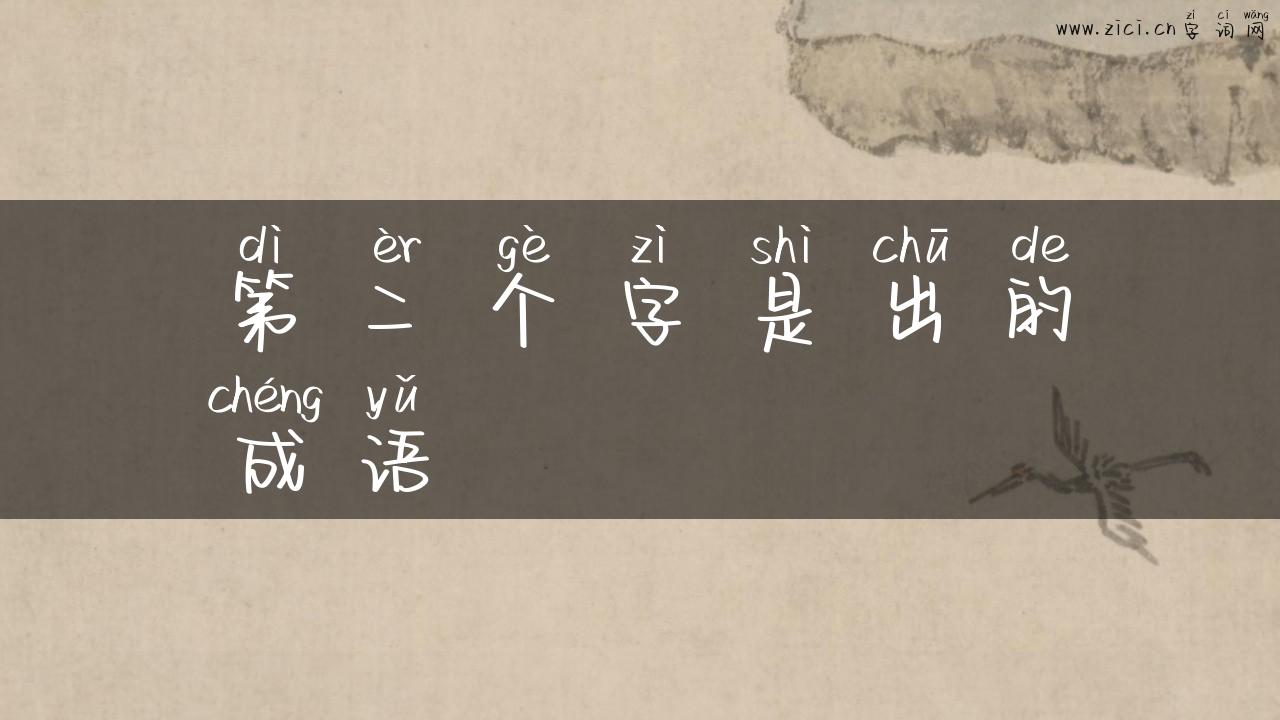 zì cí wǎng
www.zici.cn字词网
dì èr gè zì shì chū de
第二个字是出的
chéng yǔ
成语